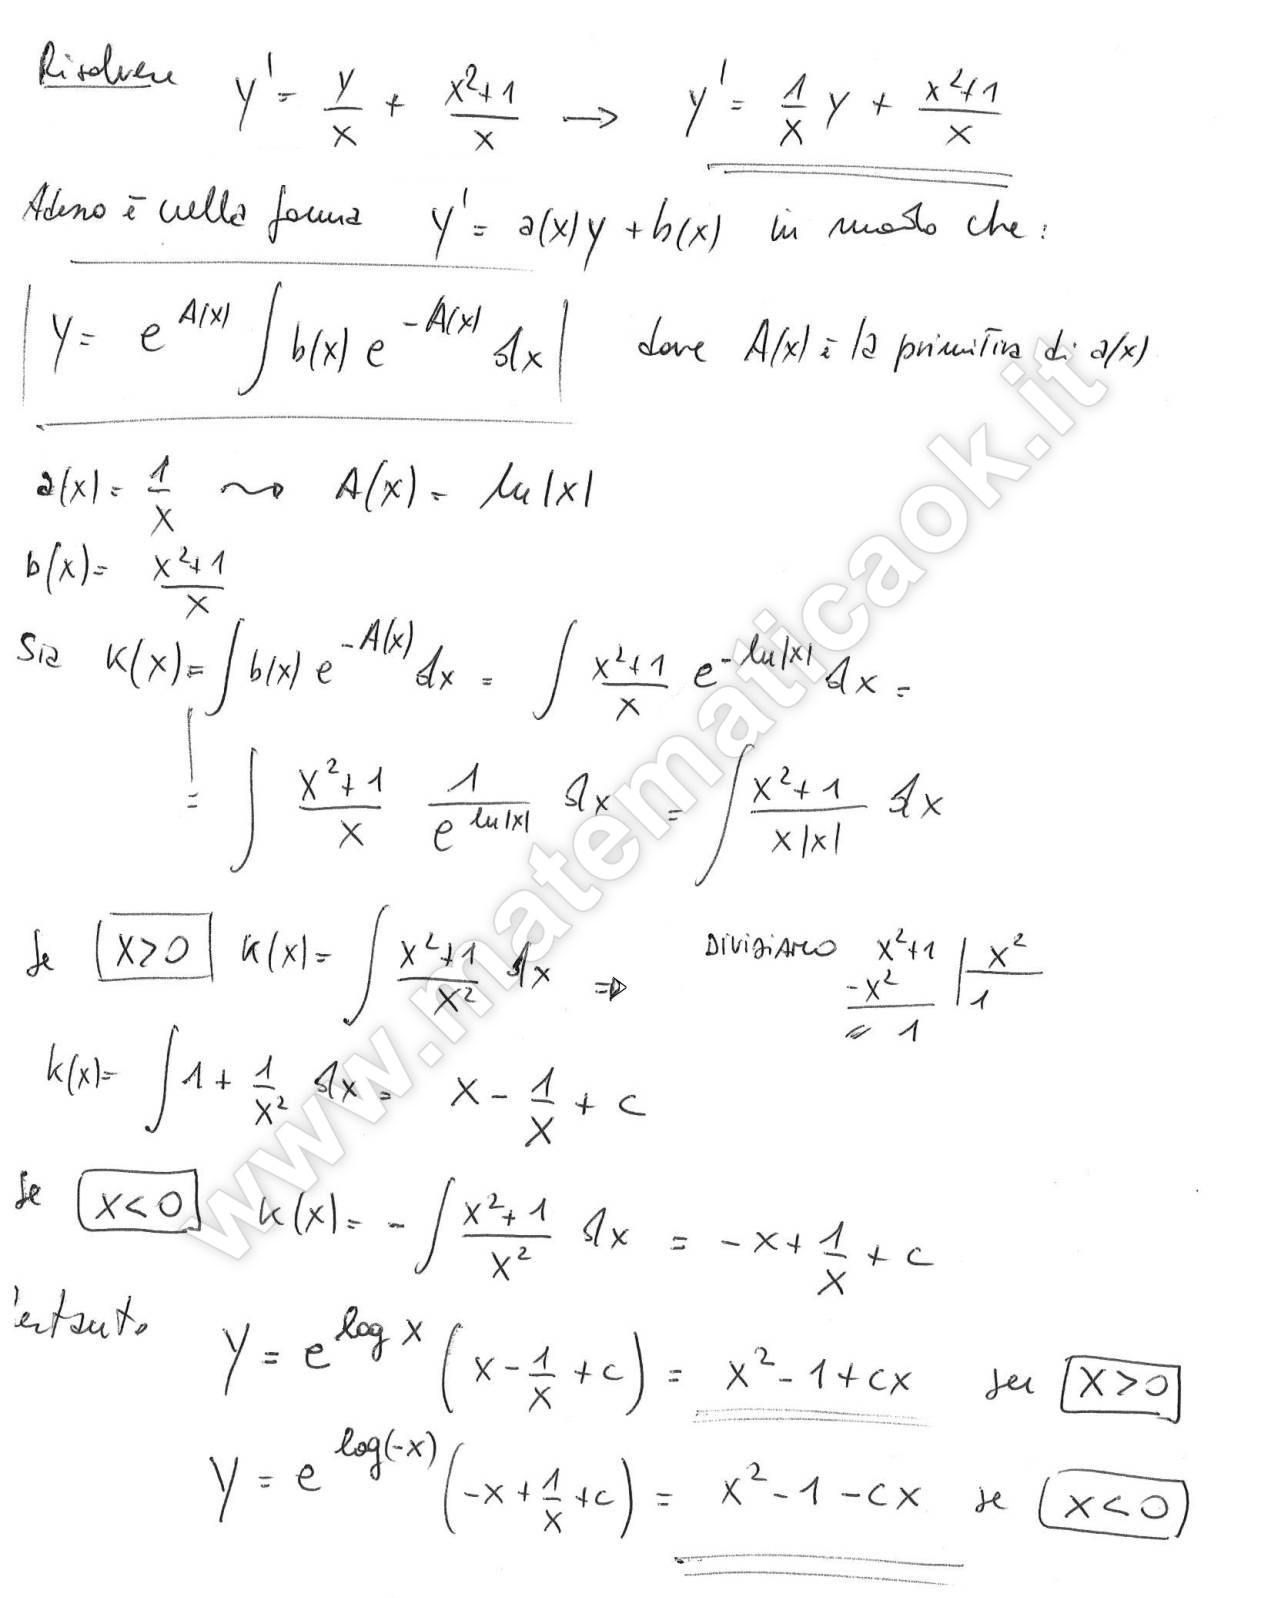 Risolvere y' = y/x + (x²+1)/x → y' = 1/x y + (x²+1)/x
Adesso è nella forma y' = a(x)y + b(x) in modo che:
y = e^{A(x)} ∫ b(x) e^{-A(x)} dx dove A(x) è la primitiva di a(x)
a(x) = 1/x ⇝ A(x) = ln|x|
b(x) = (x²+1)/x
Sia K(x) = ∫ b(x) e^{-A(x)} dx = ∫ (x²+1)/x e^{-ln|x|} dx =
= ∫ (x²+1)/x 1/e^{ln|x|} dx = ∫ (x²+1)/(x|x|) dx
Se x>0 K(x) = ∫ (x²+1)/x² dx ⇒ DIVIDIAMO x²+1 | x²
-x² 1
= 1
K(x) = ∫ 1 + 1/x² dx = x - 1/x + c
Se x<0 K(x) = - ∫ (x²+1)/x² dx = -x + 1/x + c
ertanto y = e^{log x} (x - 1/x + c) = x² - 1 + cx se x>0
y = e^{log(-x)} (-x + 1/x + c) = x² - 1 - cx se x<0
www.matematicaok.it